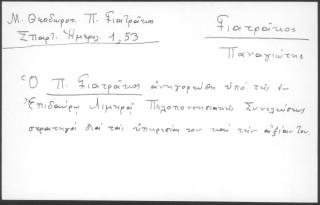 Μ. Θεοδωροπ. Π. Γιατράκος
Σπαρτ. Ημερολ. 1, 53
Γιατράκος
Παναγιώτης
Ὁ Π. Γιατράκος ἀνηγορεύθη ὑπὸ τῆς ἐν
Ἐπιδαύρῳ Λιμηρᾷ Πελοποννησιακῆς Συνελεύσεως
στρατηγὸς διὰ τὰς ὑπηρεσίας του καὶ τὴν ἀξίαν του.